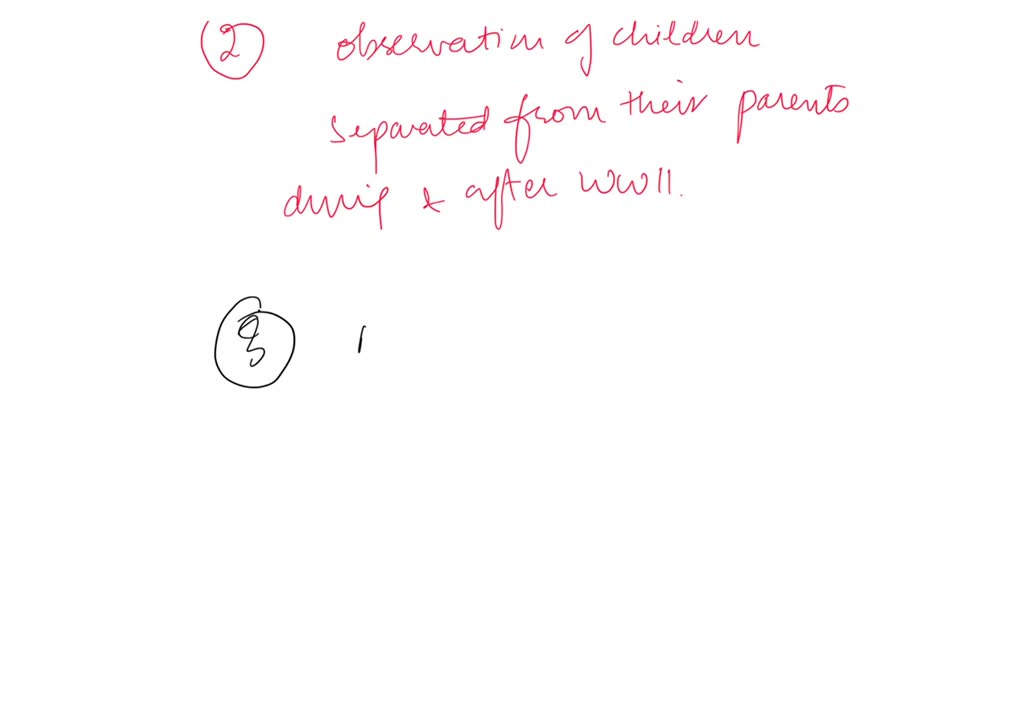 ② observation of children
separated from their parents
during & after WWII.
③